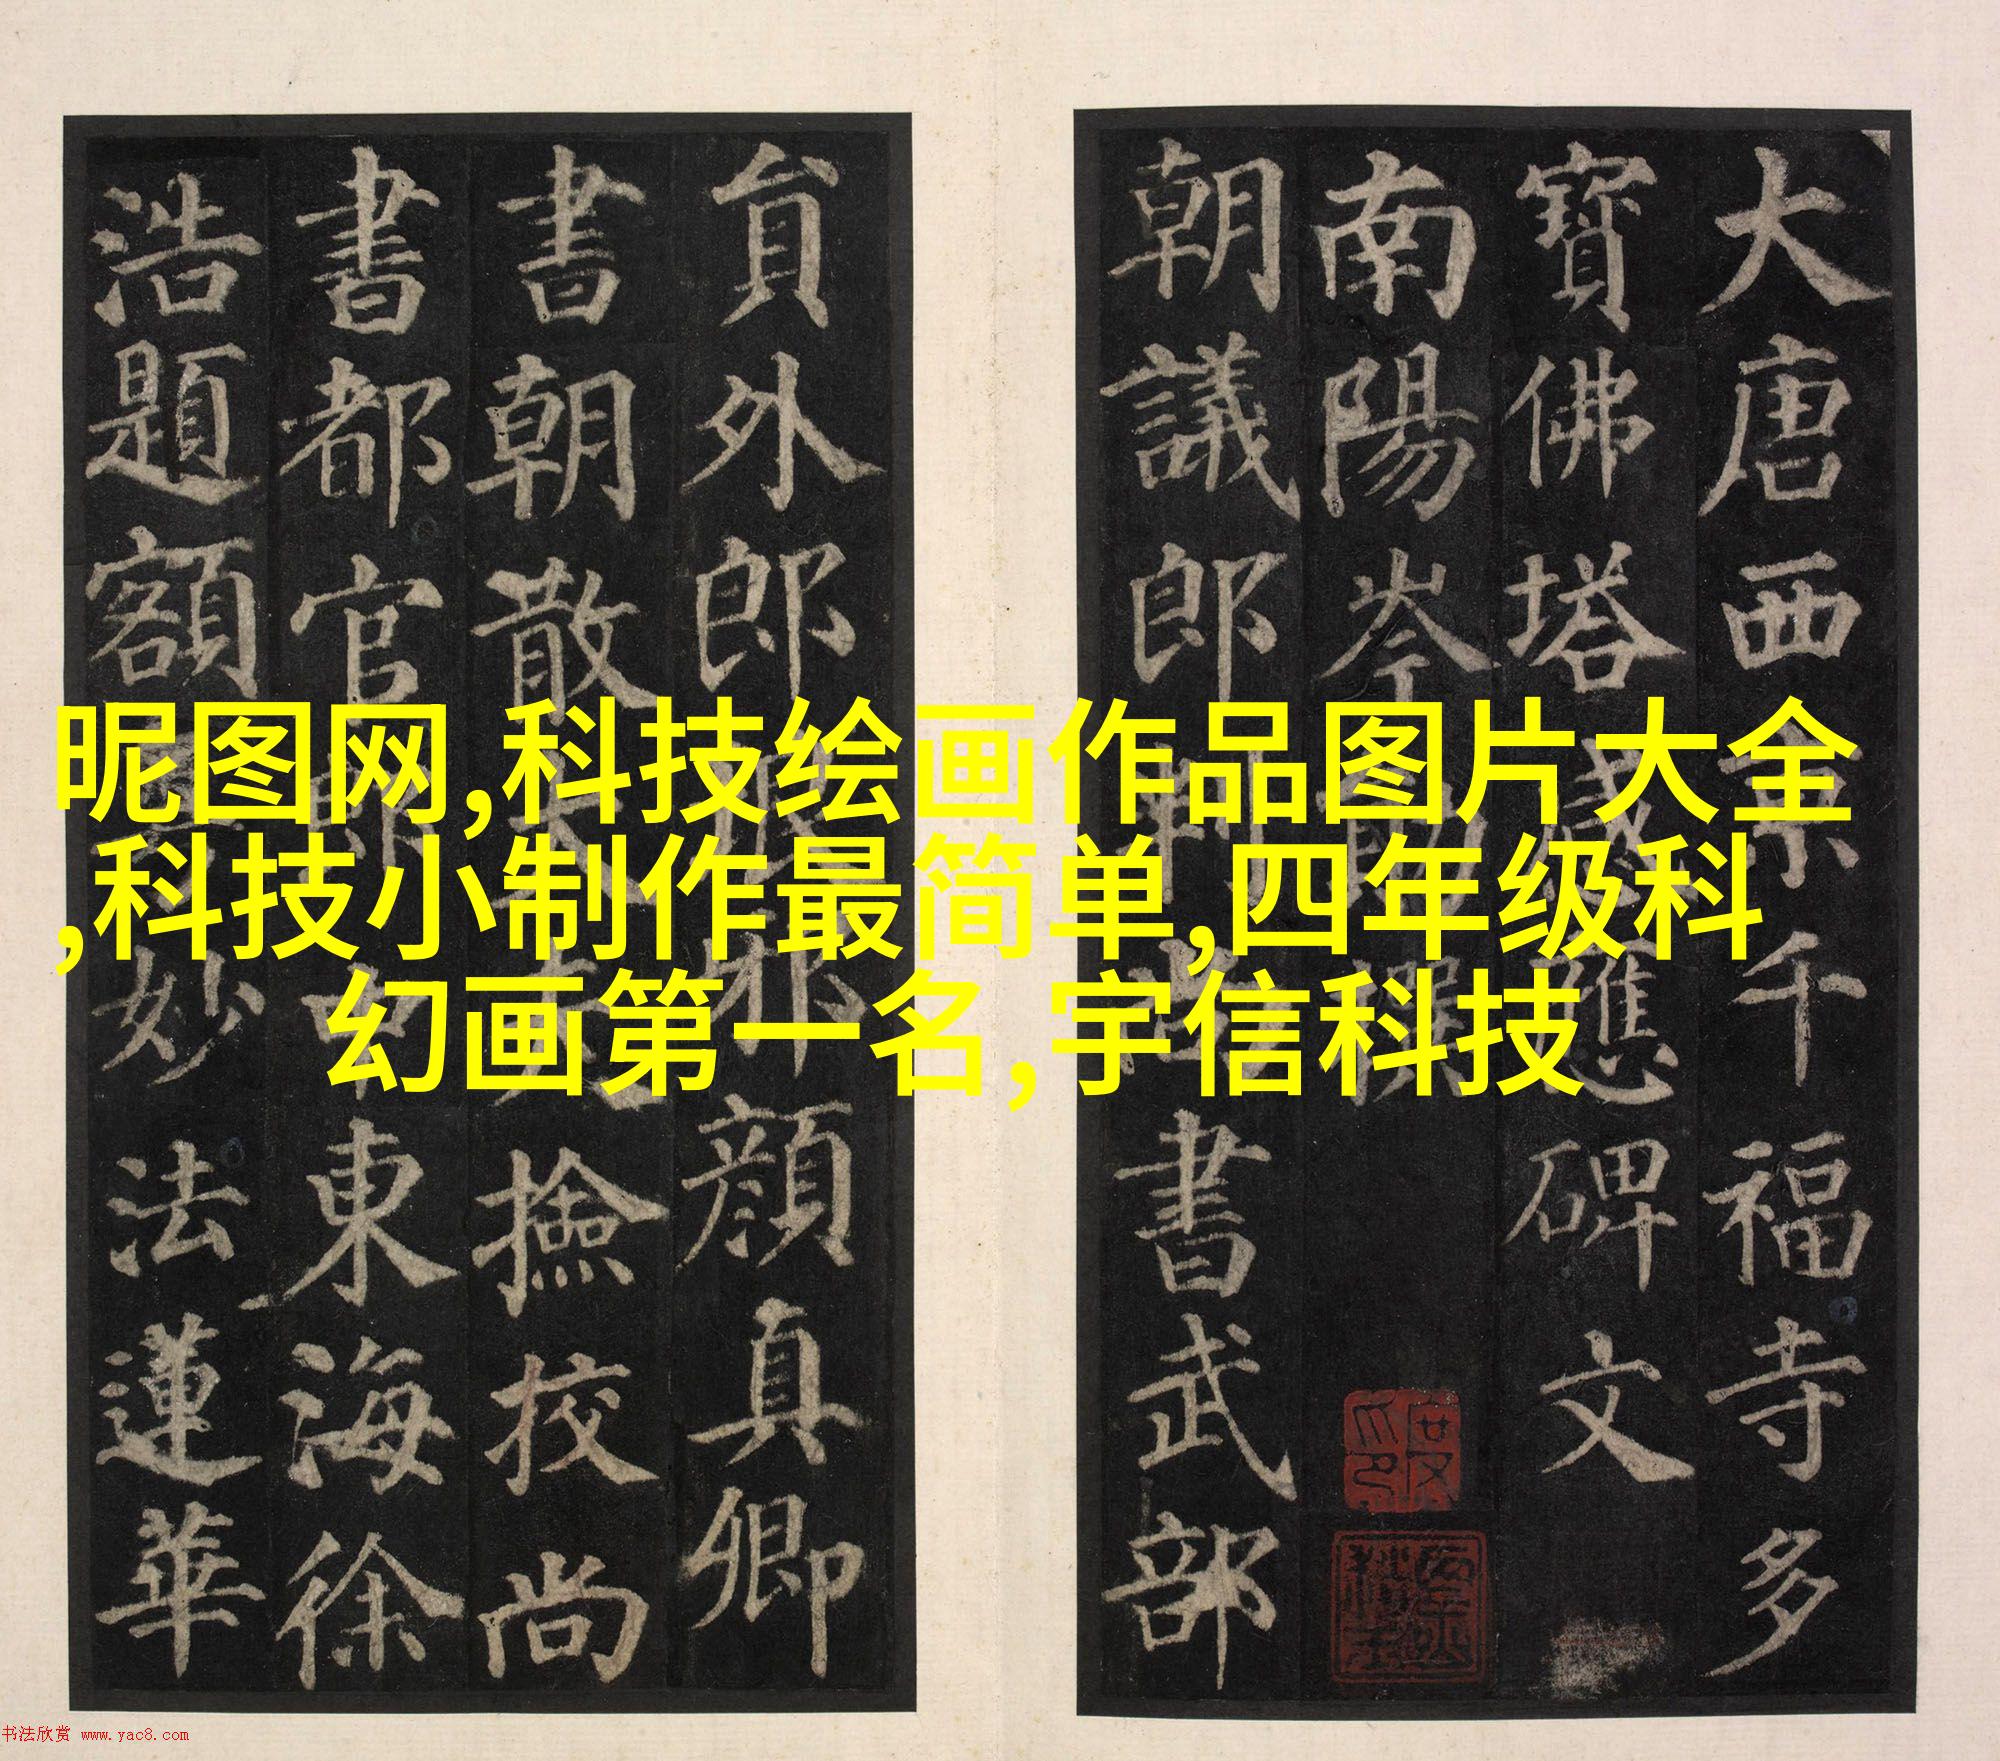 大唐西京千福寺多
寶佛塔感應碑文
南陽岑勛撰
朝議郎判尚書武部
貟外郎琅邪顏真卿
書朝散大夫撿校尚
書都官郎中東海徐
浩題額
妙法蓮華
昵图网,科技绘画作品图片大全
,科技小制作最简单,四年级科
幻画第一名,宇信科技
书法欣赏 www.yac8.com